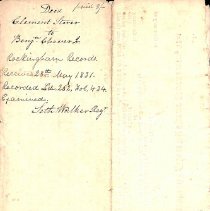 Deed
Clement Storer
to
Rockingham Records
Received 28th May 1831.
Recorded Lib. 262, Fol. 434
Examined,
Seth Walker Regr